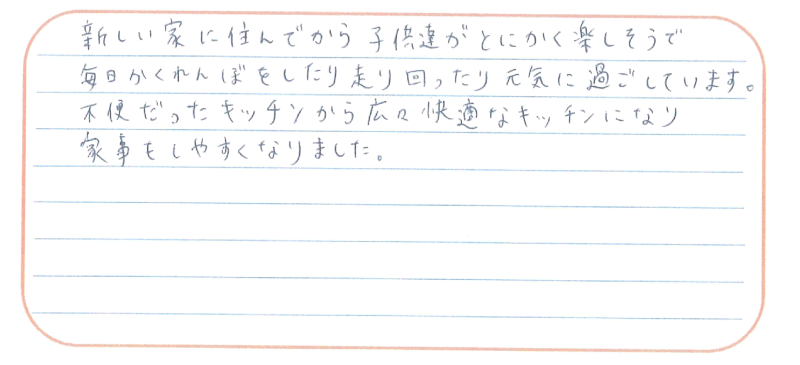 新しい家に住んでから子供達がとにかく楽しそうで
毎日かくれんぼをしたり走り回ったり元気に過ごしています。
不便だったキッチンから広々快適なキッチンになり
家事もしやすくなりました。